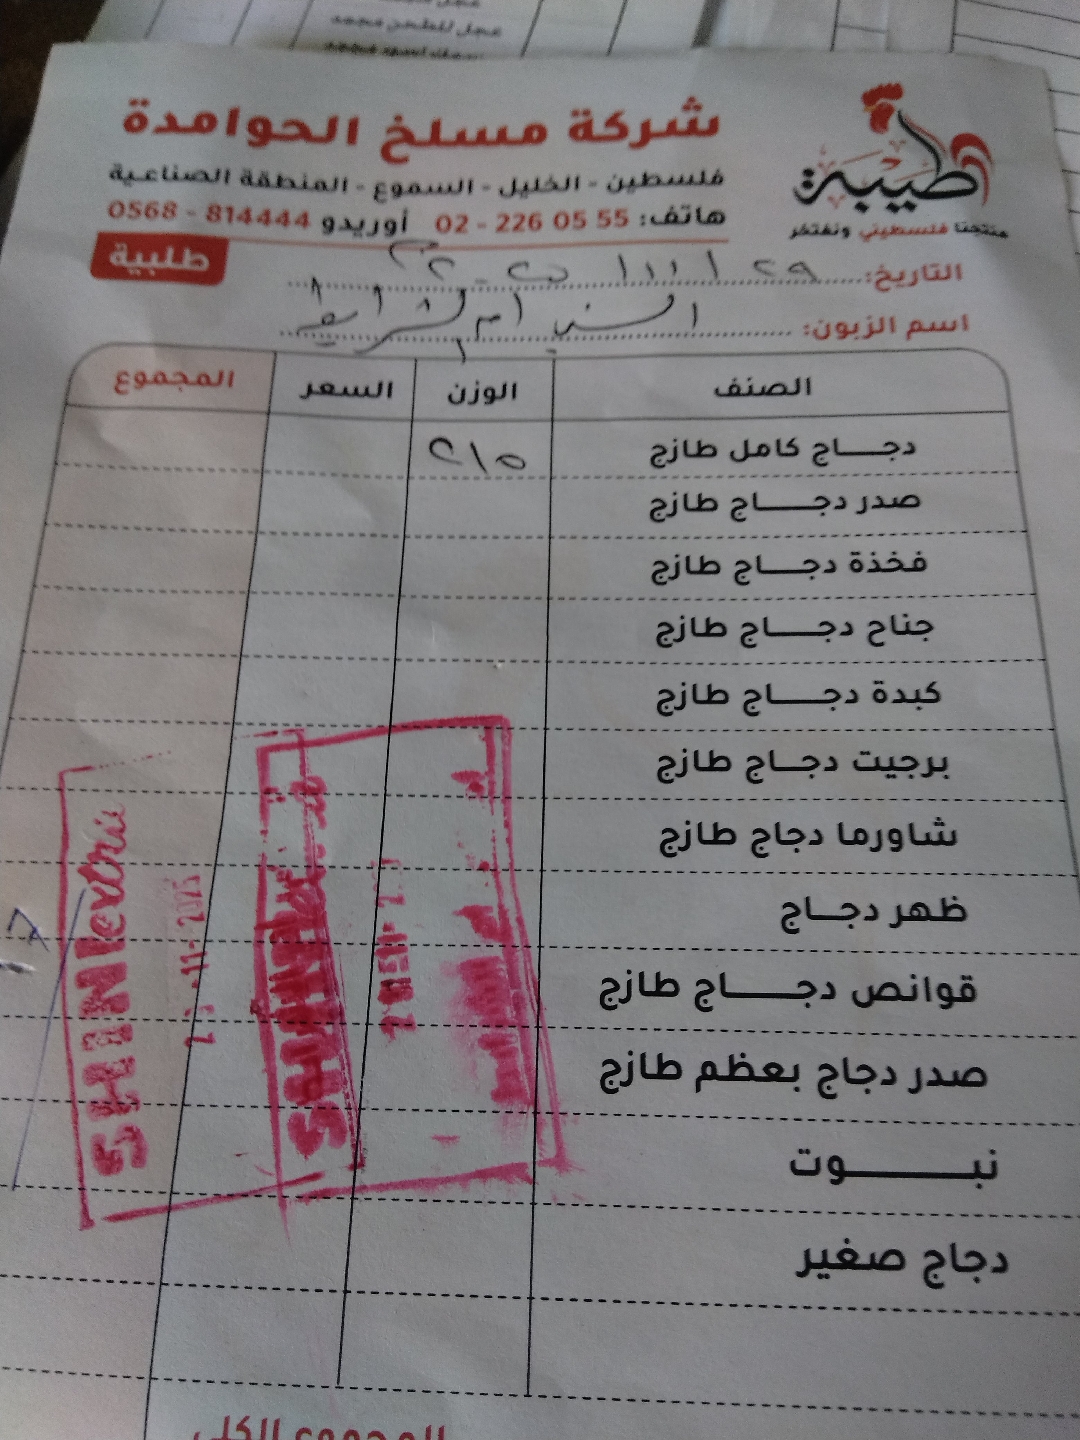 عجل للطحن مجمد
شركة مسلخ الحوامدة
فلسطين - الخليل - السموع - المنطقة الصناعية
هاتف: 02 - 226 05 55 أوريدو 0568 - 814444
طيبة
منتجنا فلسطيني ونفتخر
طلبية
التاريخ:
اسم الزبون: ام الشرايط
الصنف الوزن السعر المجموع
دجاج كامل طازج ٢١٥
صدر دجاج طازج
فخذة دجاج طازج
جناح دجاج طازج
كبدة دجاج طازج
برجيت دجاج طازج
شاورما دجاج طازج
ظهر دجاج
قوانص دجاج طازج
صدر دجاج بعظم طازج
نبوت
دجاج صغير
المجموع الكلي
SHINI extra
-11-2025
SHINI